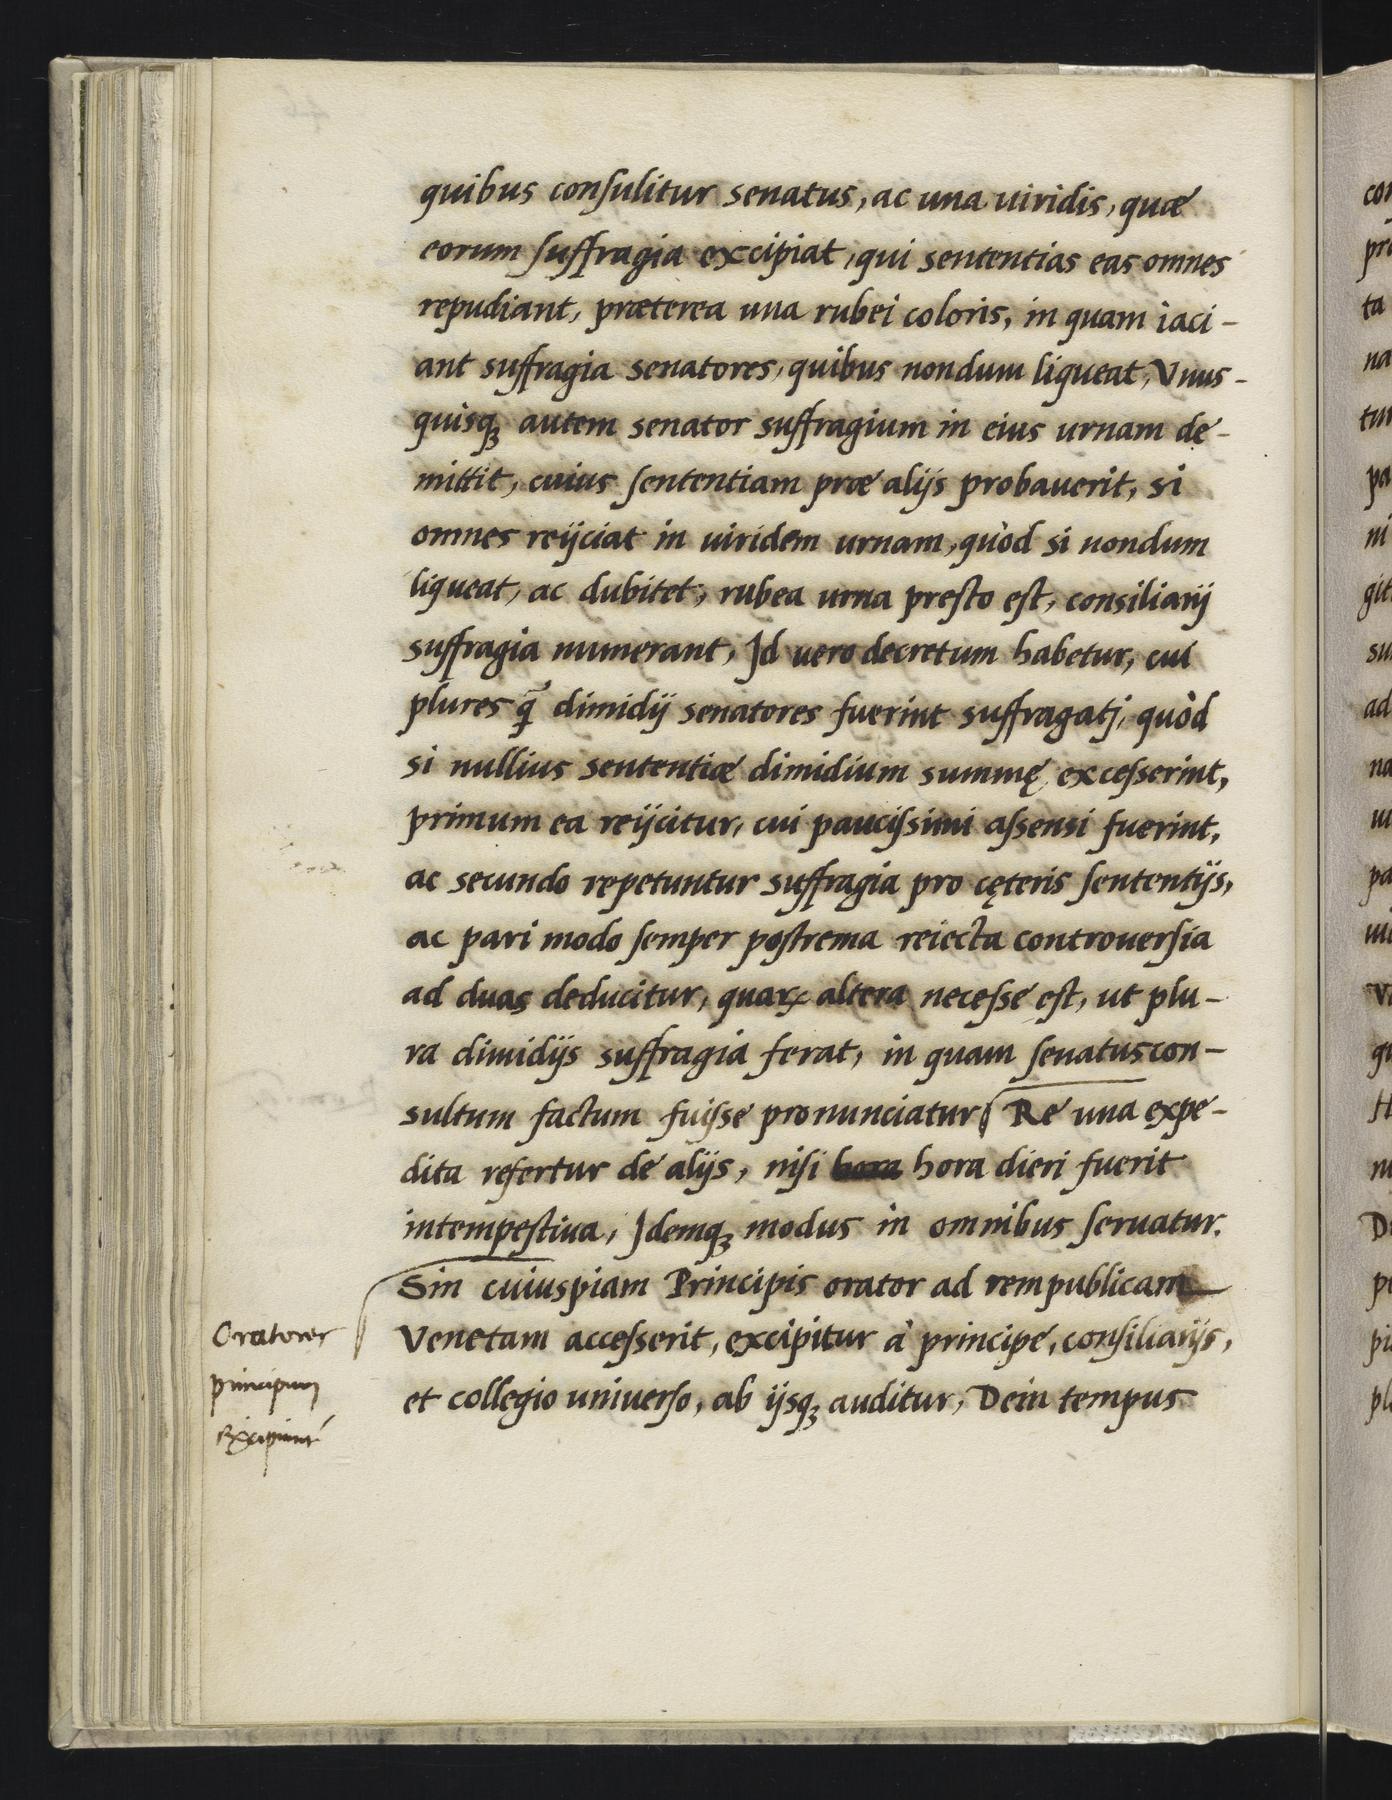 quibus consulitur senatus, ac una uiridis, quæ
eorum suffragia excipiat, qui sententias eas omnes
repudiant, præterea una rubei coloris, in quam iaci-
ant suffragia senatores, quibus nondum liqueat, Vnus-
quisqꝫ autem senator suffragium in eius urnam de-
mittit, cuius sententiam præ alijs probauerit, si
omnes reijciat in uiridem urnam, quòd si nondum
liqueat, ac dubitet, rubea urna presto est, consiliarij
suffragia numerant, Id uero decretum habetur, cui
plures q̃ dimidij senatores fuerint suffragatj, quòd
si nullius sententiæ dimidium summę excesserint,
primum ea reijcitur, cui paucissimi assensi fuerint,
ac secundo repetuntur suffragia pro cęteris sententijs,
ac pari modo semper postrema reiecta controuersia
ad duas deducitur, quaꝝ altera necesse est, ut plu-
ra dimidijs suffragia ferat, in quam senatuscon-
sultum factum fuisse pronunciatur Re una expe-
dita refertur de alijs, nisi hora hora diei fuerit
intempestiua, Idemqꝫ modus in omnibus seruatur.
Sin cuiuspiam Principis orator ad rempublicam
Oratores
principum
excipiunt
Venetam accesserit, excipitur à principe, consiliarijs,
et collegio uniuerso, ab ijsqꝫ auditur, Dein tempus